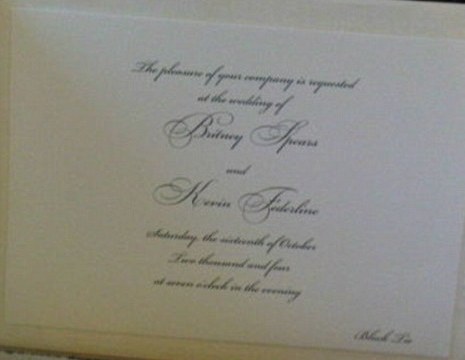 The pleasure of your company is requested
at the wedding of
Britney Spears
and
Kevin Federline
Saturday, the sixteenth of October
Two thousand and four
at seven o'clock in the evening
Black Tie